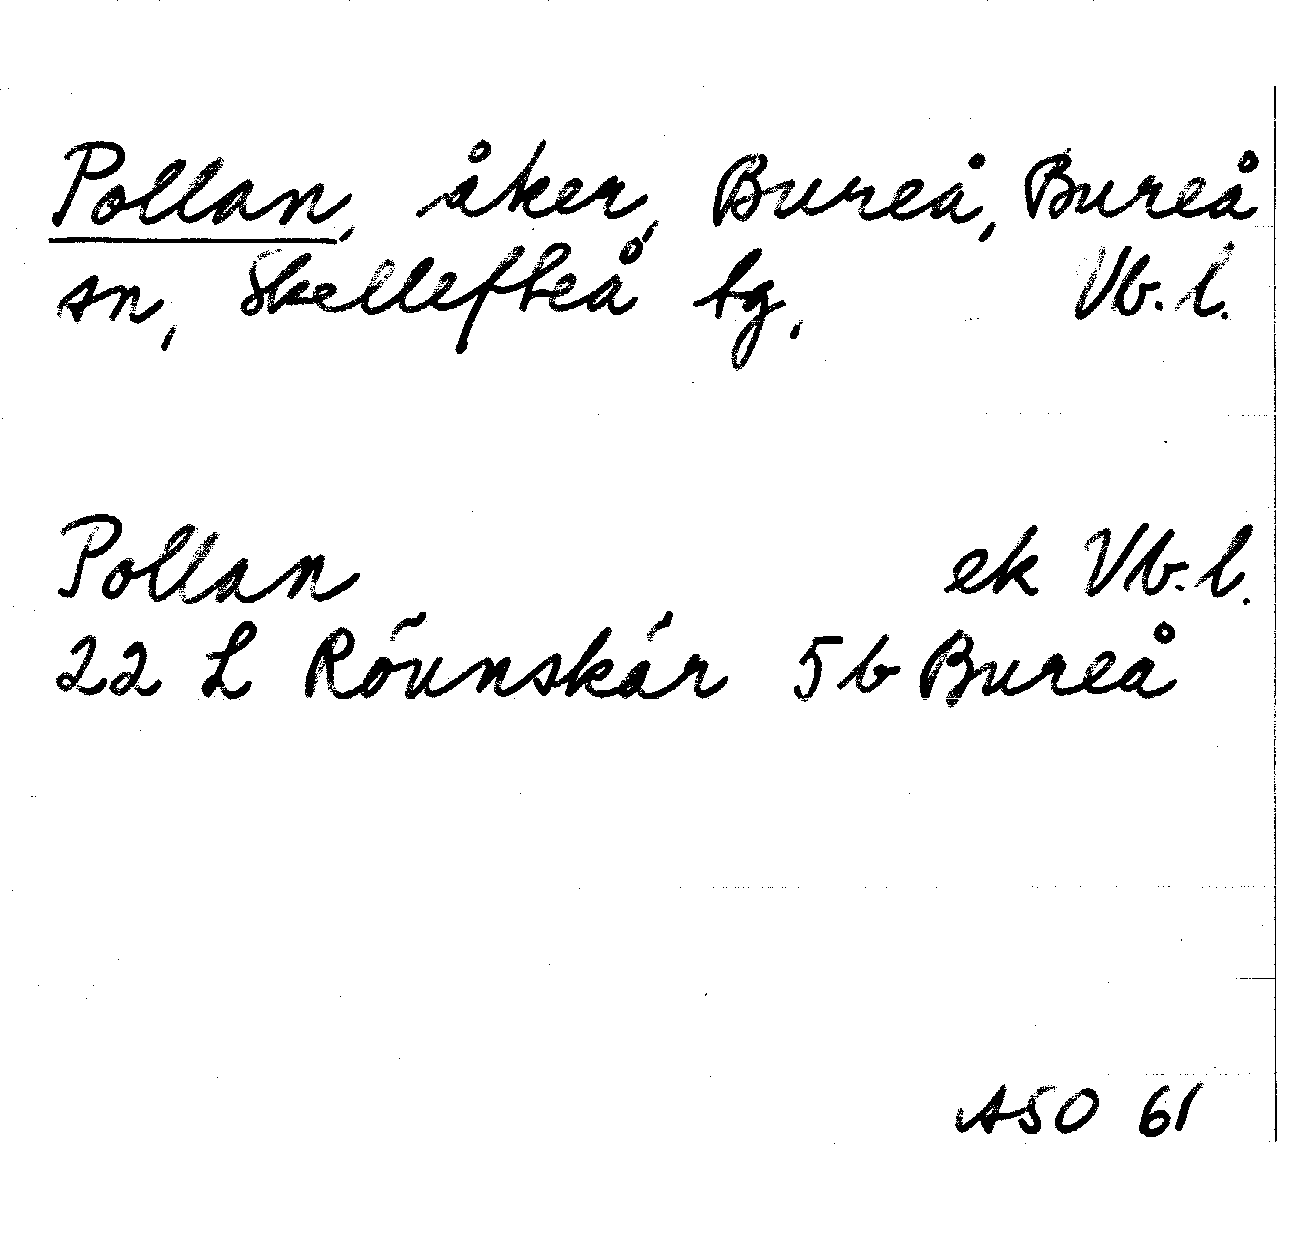 Pollan, åker, Bureå, Bureå
sn, Skellefteå tg, Vb. l.
Pollan ek Vb. l.
22 L Rövnskär 5b Bureå
ASO 61